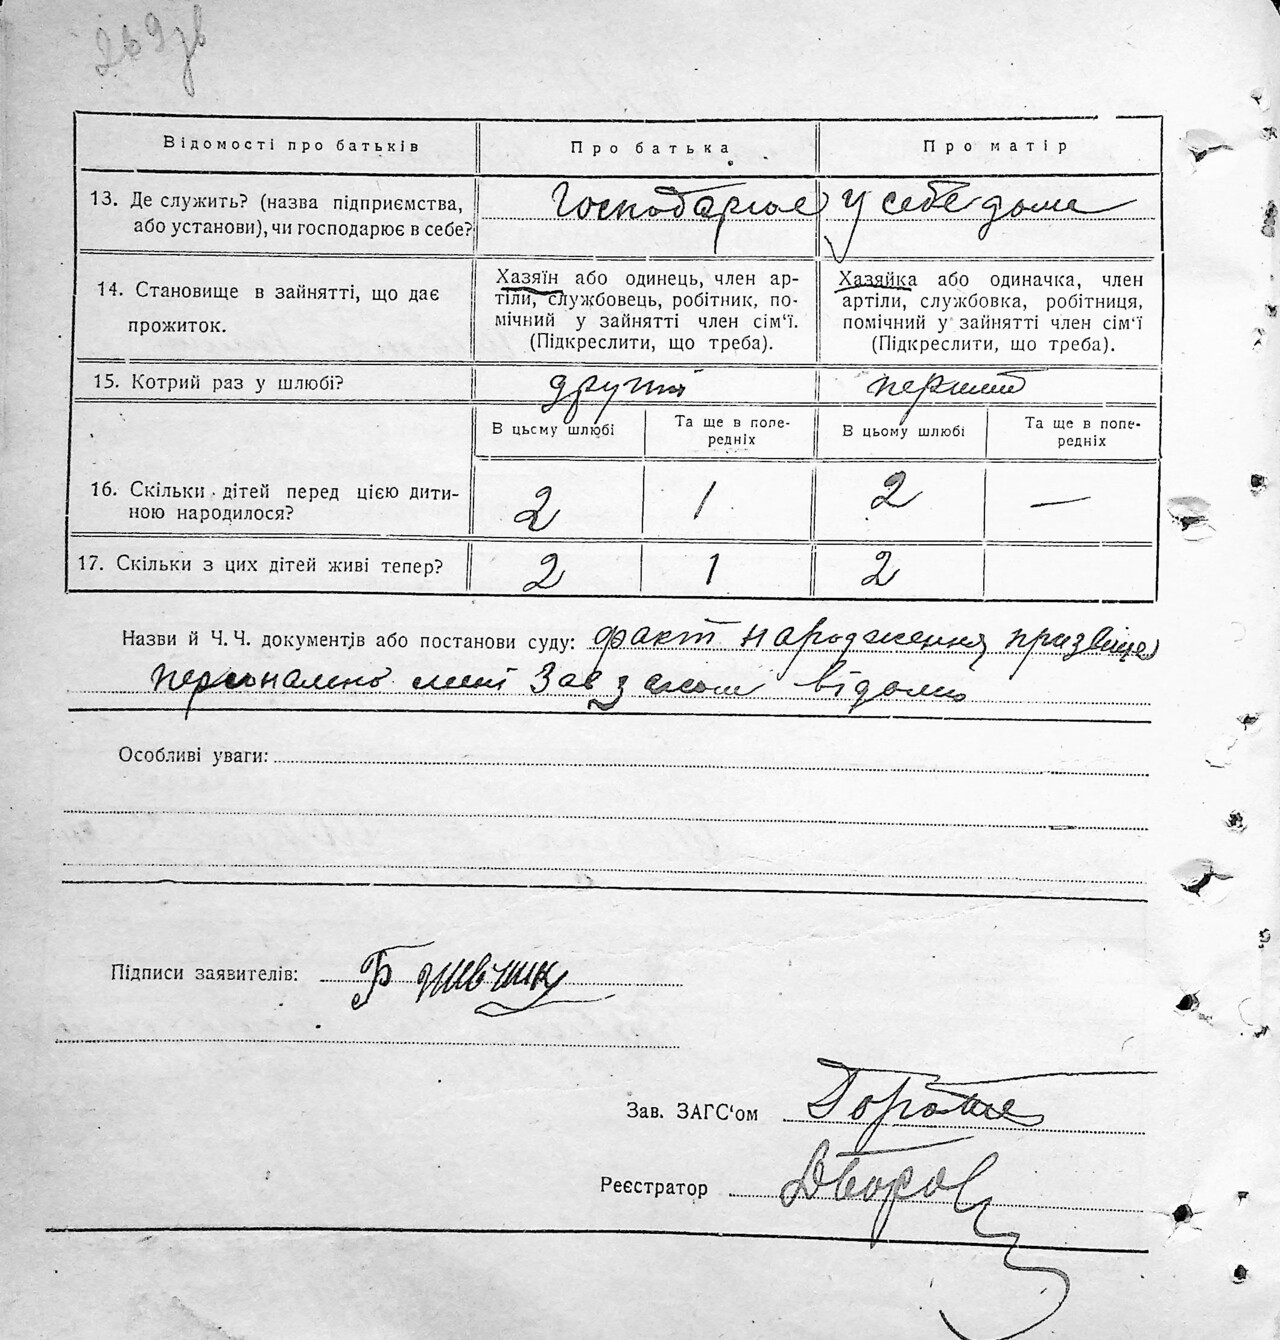 269зв
Відомості про батьків
Про батька
Про матір
13. Де служить? (назва підприємства,
або установи), чи господарює в себе?
Господарює у себе дома
14. Становище в зайнятті, що дає
прожиток.
Хазяїн або одинець, член ар-
тіли, службовець, робітник, по-
мічний у зайнятті член сім'ї.
(Підкреслити, що треба).
Хазяйка або одиначка, член
артіли, службовка, робітниця,
помічний у зайнятті член сім'ї
(Підкреслити, що треба).
15. Котрий раз у шлюбі?
другий
перший
В цьому шлюбі
Та ще в попе-
редніх
В цьому шлюбі
Та ще в попе-
редніх
16. Скільки дітей перед цією дити-
ною народилося?
2
1
2
—
17. Скільки з цих дітей живі тепер?
2
1
2
Назви й Ч. Ч. документів або постанови суду: факт народження прізвище
персонально мені Зав загсом відомо
Особливі уваги:
Підписи заявителів: Б
Зав. ЗАГС'ом
Реєстратор